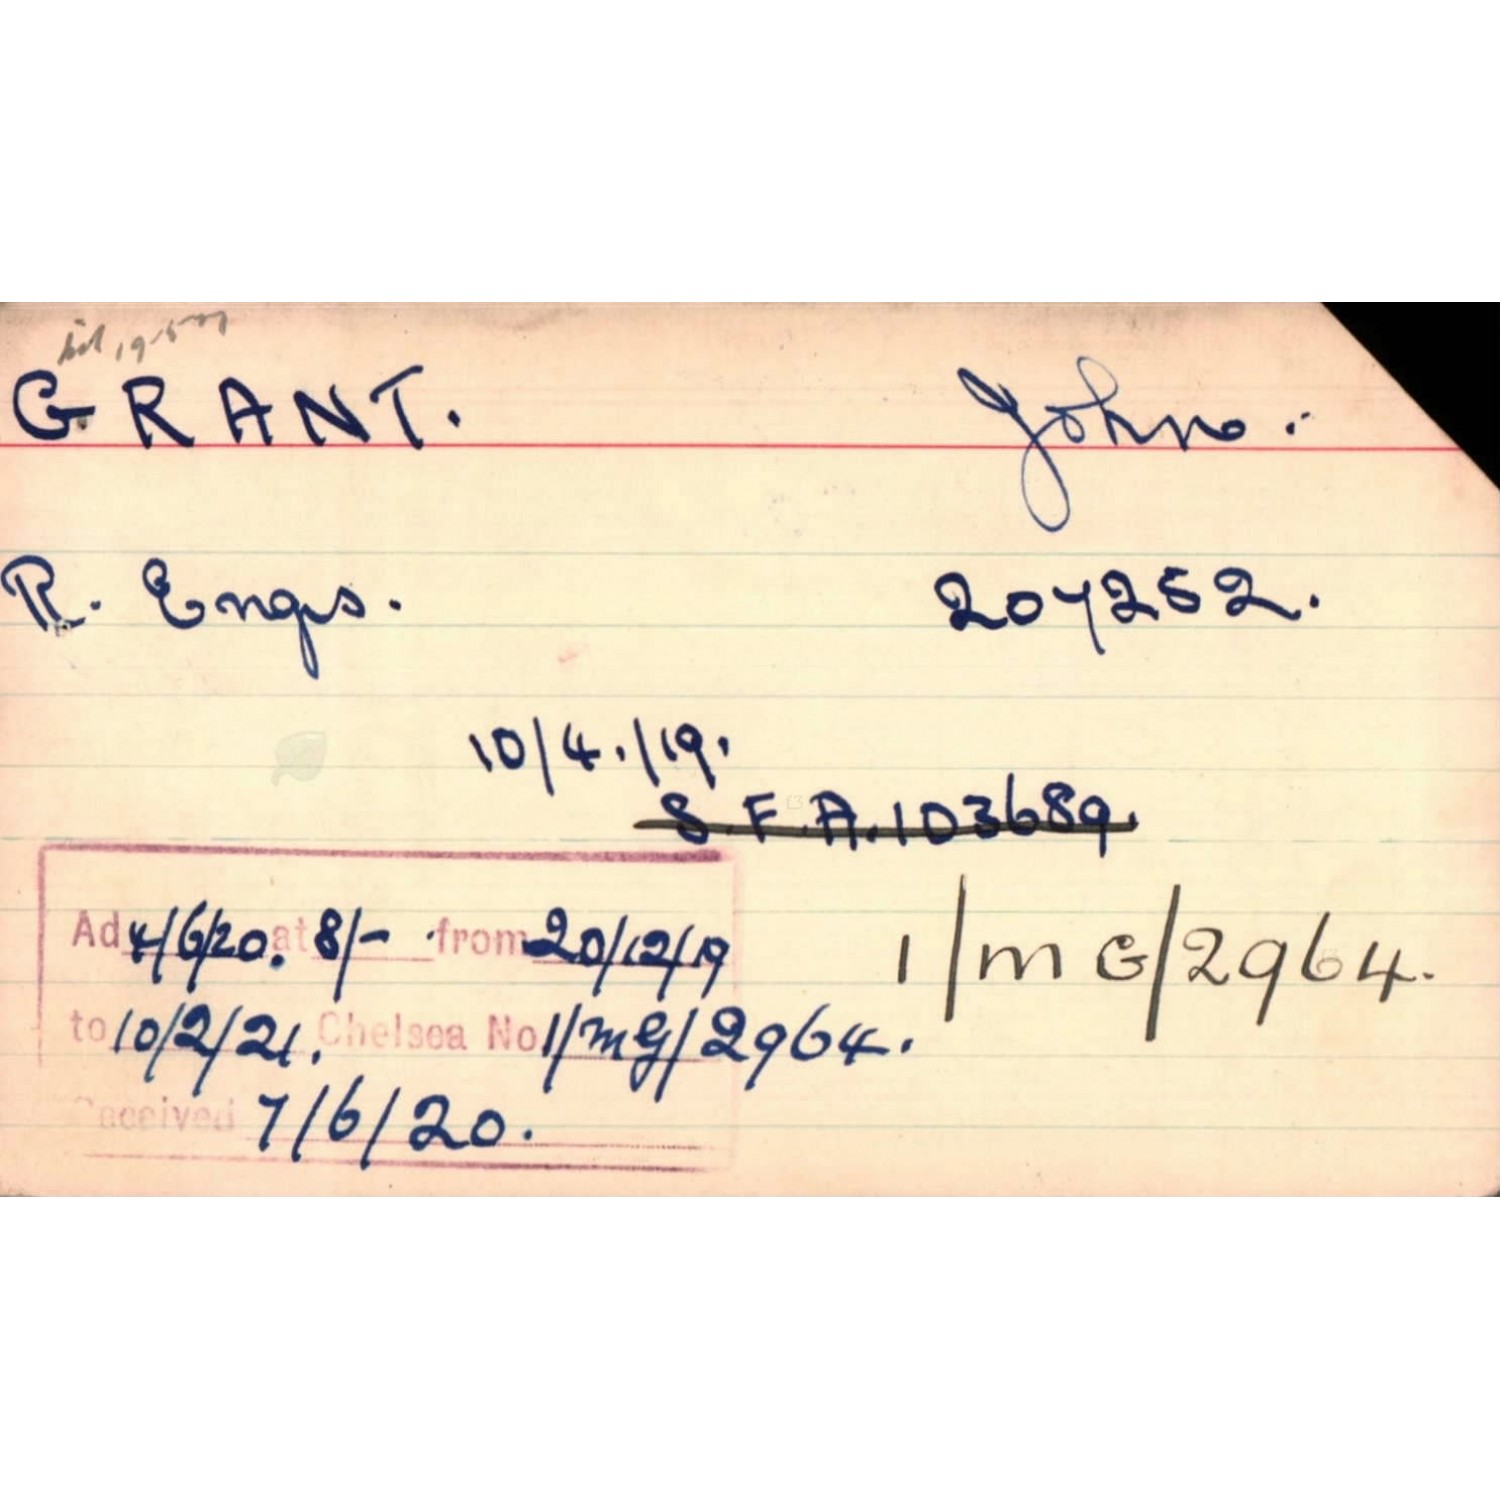 19-5-21
GRANT. John.
R. Engrs. 207252.
10/4./19.
S.F.A. 103689.
1/MG/2964.
Ad 4/6/20. at 8/- from 20/12/19
to 10/2/21. Chelsea No 1/MG/2964.
Received 7/6/20.